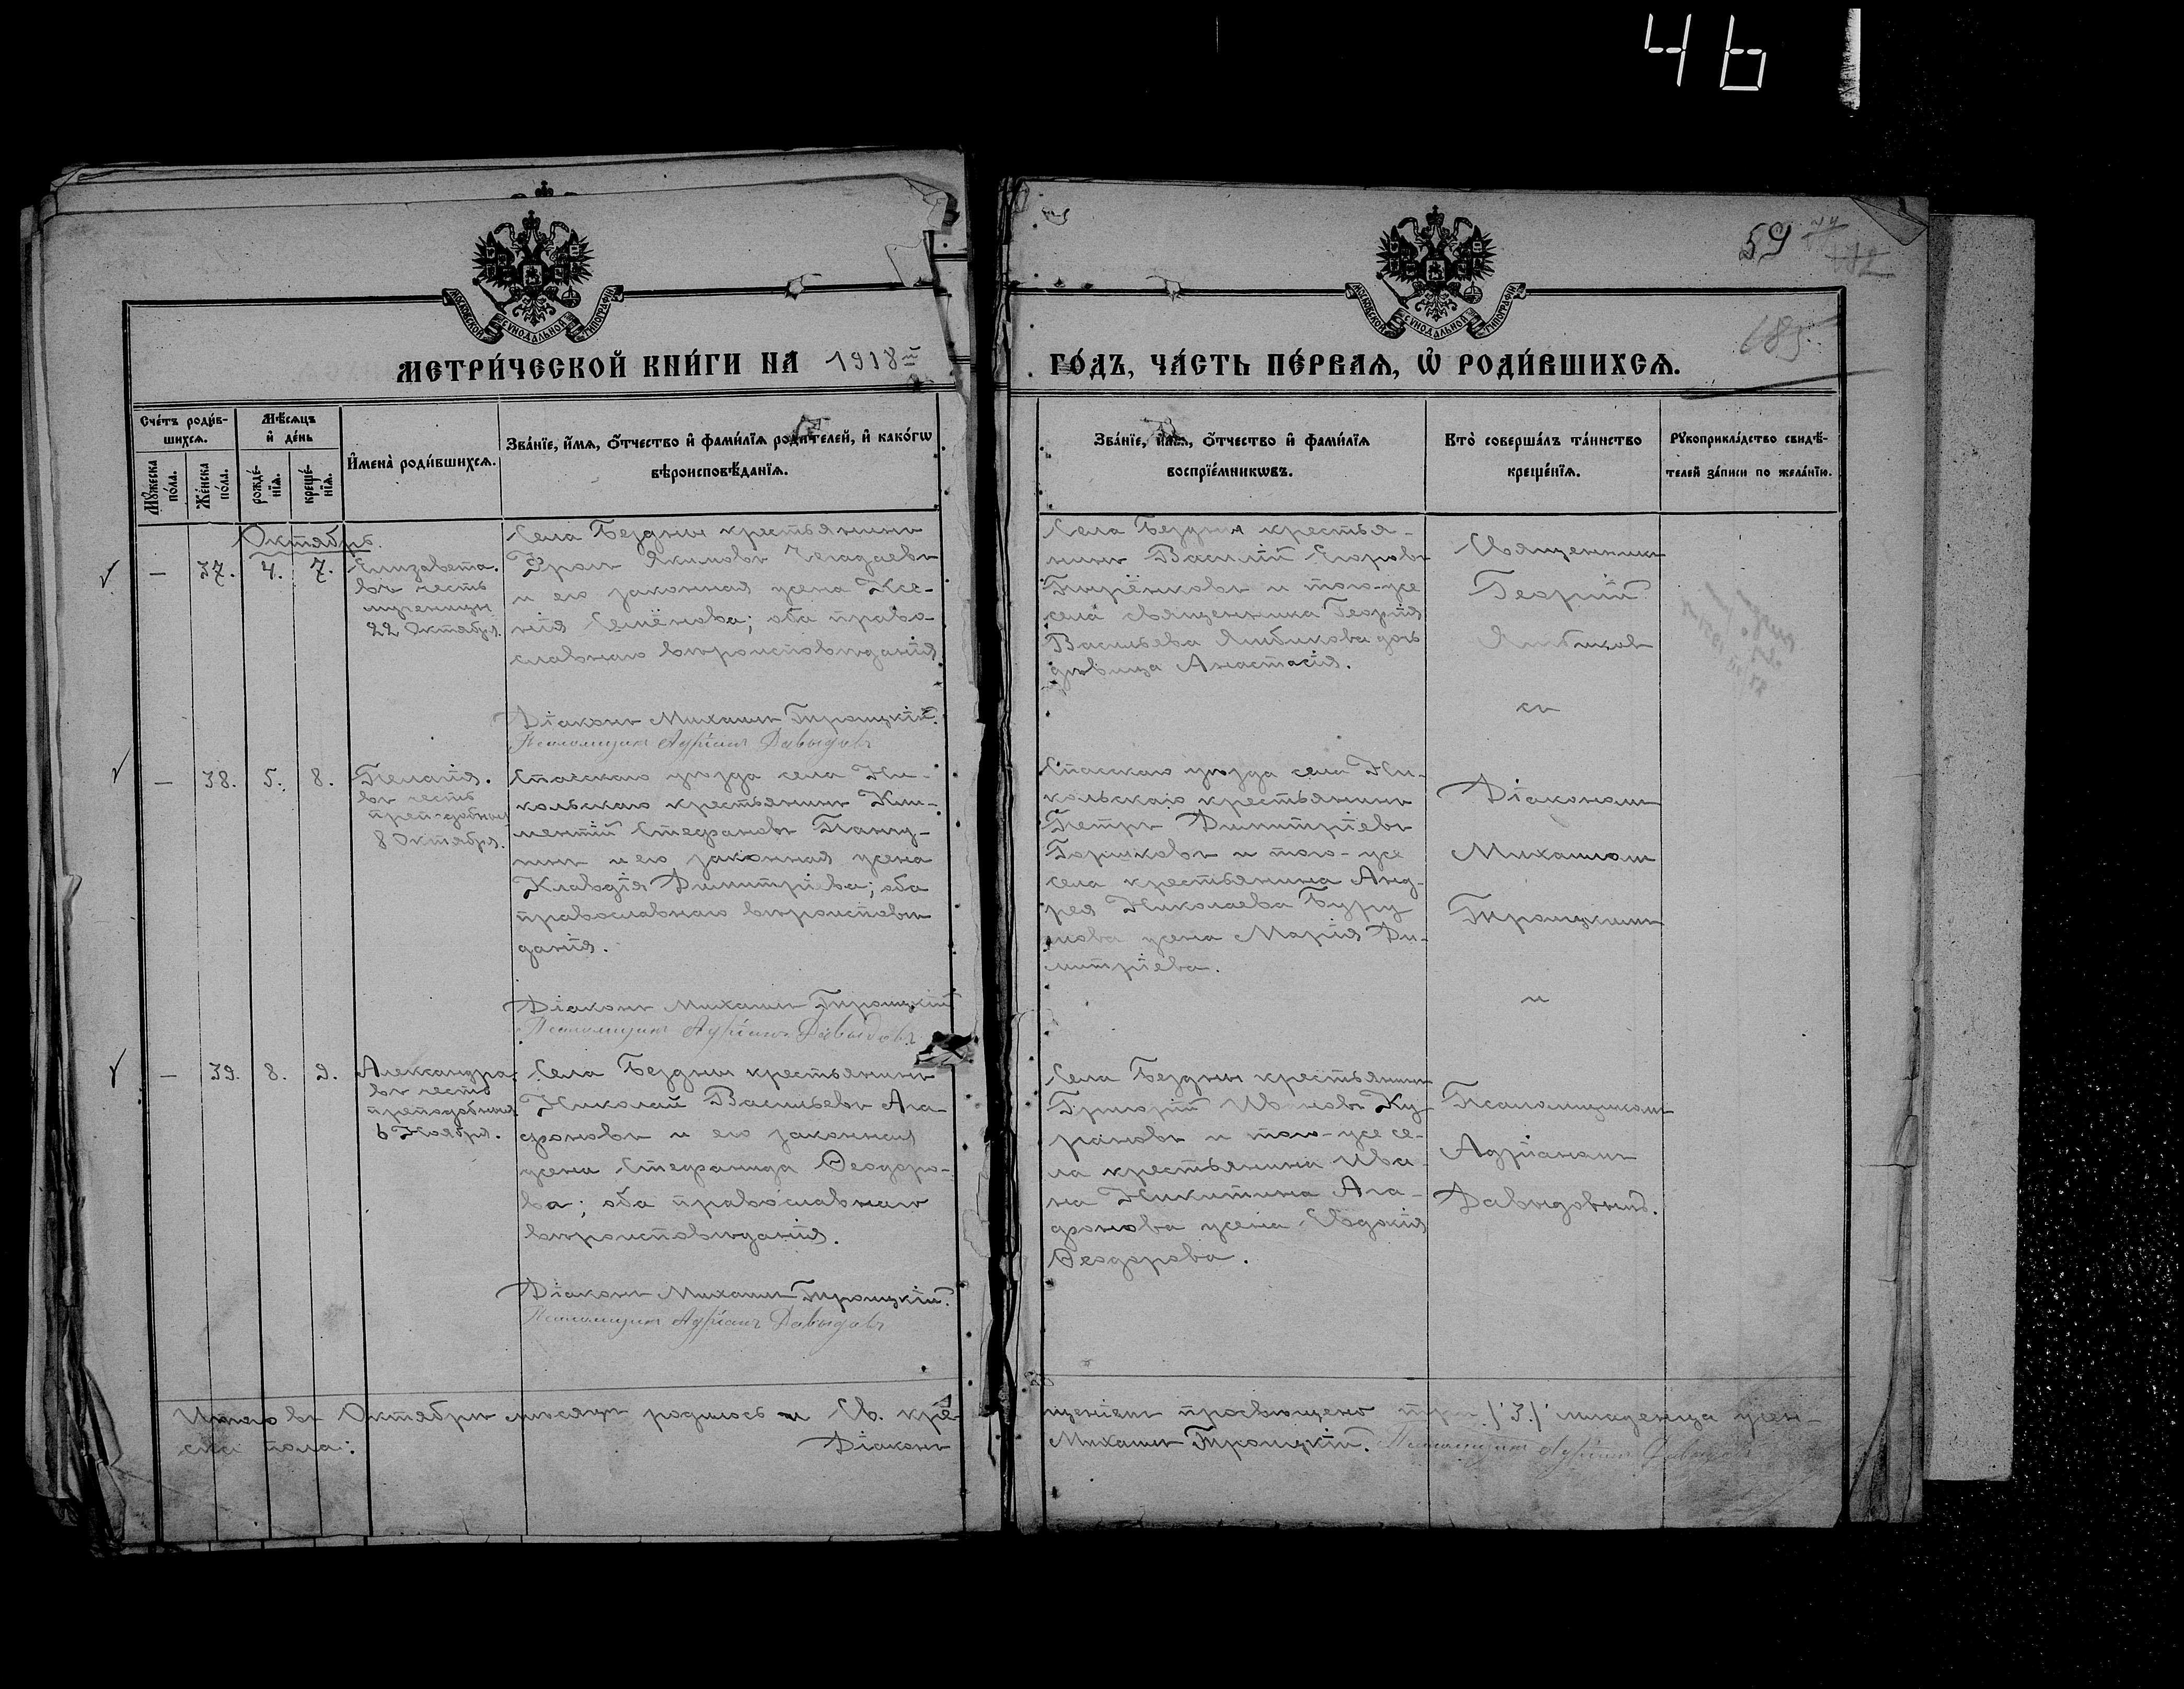 46
МОСКОВСКОЙ СУНОДАЛЬНОЙ ТИПОГРАФИИ
МОСКОВСКОЙ СУНОДАЛЬНОЙ ТИПОГРАФИИ
59
МЕТРИ́ЧЕСКОЙ КНИ́ГИ НА 1918 й
ГО́ДЪ, ЧА́СТЬ ПЕ́РВАѦ, Ѡ РОДИ́ВШИХСѦ.
Сче́тъ роди́в-
шихсѧ.
Мѣ́сѧцъ
и҆ де́нь
Мꙋ́жеска по́ла.
Же́нска по́ла.
рожде́-
нїѧ.
креще́-
нїѧ.
И҆мена̀ роди́вшихсѧ.
Зва́нїе, и҆́мѧ, ѻ҆́тчество и҆ фами́лїѧ роди́телей, и҆ како́гѡ
вѣроисповѣ́данїѧ.
Зва́нїе, и҆́мѧ, ѻ҆́тчество и҆ фами́лїѧ
воспрїе́мникѡвъ.
Кто̀ соверша́лъ та́инство
креще́нїѧ.
Рꙋкоприкла́дство свидѣ́-
телей за́писи по жела́нїю.
Октябрь.
— 37. 4. 7.
Елизавета.
въ честь
мученицы
22 Октября.
Села Бездны крестьянинъ
Фролъ Якимовъ Чегадаевъ
и его законная жена Ксе-
нія Семёнова; оба право-
славнаго вѣроисповѣданія
Діаконъ Михаилъ Троицкій.
Псаломщикъ Адріанъ Давыдовъ
Села Бездны крестья-
нинъ Василій Егоровъ
и того-же
села священника Георгія
Васильева Ямбикова дочь
дѣвица Анастасія.
Священникъ
Георгій
Ямбиковъ
съ
— 38. 5. 8.
Пелагія.
въ честь
преподобныя
8 Октября.
Спасскаго уѣзда села Ни-
кольскаго крестьянинъ Кли-
ментій Стефановъ
и его законная жена
Клавдія Димитріева; оба
православнаго вѣроисповѣ
данія.
Діаконъ Михаилъ Троицкій
Псаломщикъ Адріанъ Давыдовъ
Спасскаго уѣзда села Ни-
кольскаго крестьянинъ
Петръ Димитріевъ
Горшковъ и того-же
села крестьянина Анд-
рея Николаева
жена Марія Ди-
митріева.
Діакономъ
Михаиломъ
Троицкимъ
и
— 39. 8. 9.
Александра.
въ честь
преподобныя
6 Ноября.
Села Бездны крестьянинъ
Николай Васильевъ Ага-
фоновъ и его законная
жена Стефанида Ѳеодоро-
ва; оба православнаго
вѣроисповѣданія.
Діаконъ Михаилъ Троицкій.
Псаломщикъ Адріанъ Давыдовъ
Села Бездны крестьянинъ
Григорій Ивановъ Ку-
рановъ и того-же се-
ла крестьянина Ива-
на Никитина Ага-
фонова жена Евдокія
Ѳеодорова.
Псаломщикомъ
Адріаномъ
Давыдовымъ.
Итого въ Октябрѣ мѣсяцѣ родилось и Св. кре-
щеніемъ просвѣщено три /3./ младенца жен-
ска пола:
Діаконъ
Михаилъ Троицкій. Псаломщикъ Адріанъ Давыдовъ